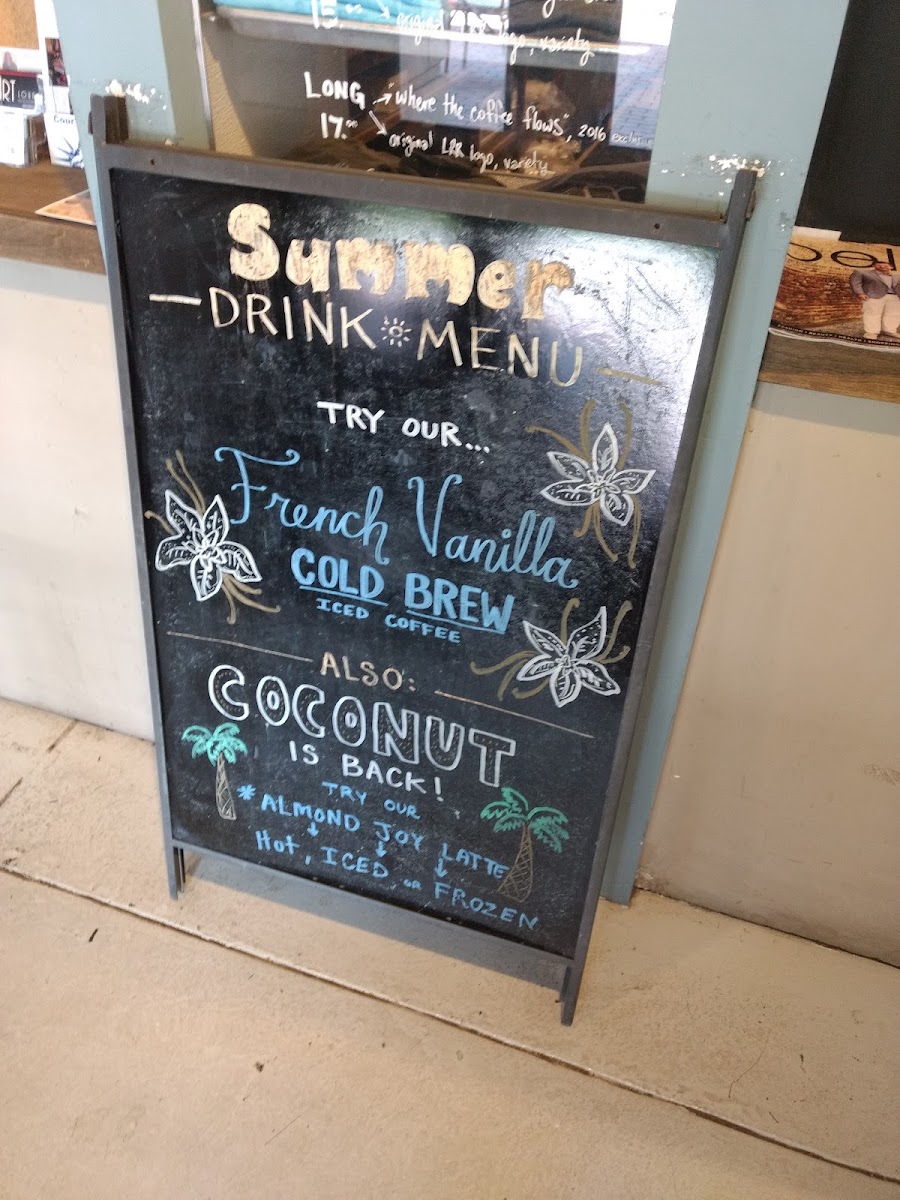 15.00 original LRR logo, variety
LONG "where the coffee flows", 2016
17.00 original LRR logo, variety
Summer
DRINK MENU
TRY OUR...
French Vanilla
COLD BREW
ICED COFFEE
ALSO:
COCONUT
IS BACK!
TRY OUR
*ALMOND JOY LATTE
Hot, ICED, OR FROZEN